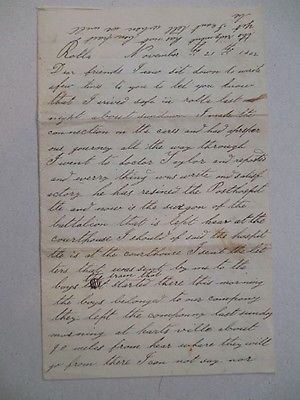 Rolla November 21th 1862
Dear friends I now sit down to write
a few lines to you to let you know
that I arived safe in rolla last
night about sundown I made the
connection on the cares and had prosper
ous journey all the way through
I went to doctor Taylor and reported
and every thing was write and satisf
actory he has resined the Posthospit
tle and now is the surgon of the
battalion that is left hear at the
courthouse I should of said the hospit
tle is at the courthouse I sent the let
ters that was sent by me to the
boys from that started there this morning
the boys belonged to our company
they left the company last sunday
morning at harts ville about
90 miles from hear where they will
go from there I can not say nor